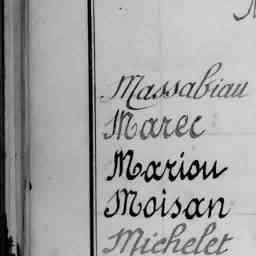 Massabiau
Marec
Mariou
Moisan
Michelet